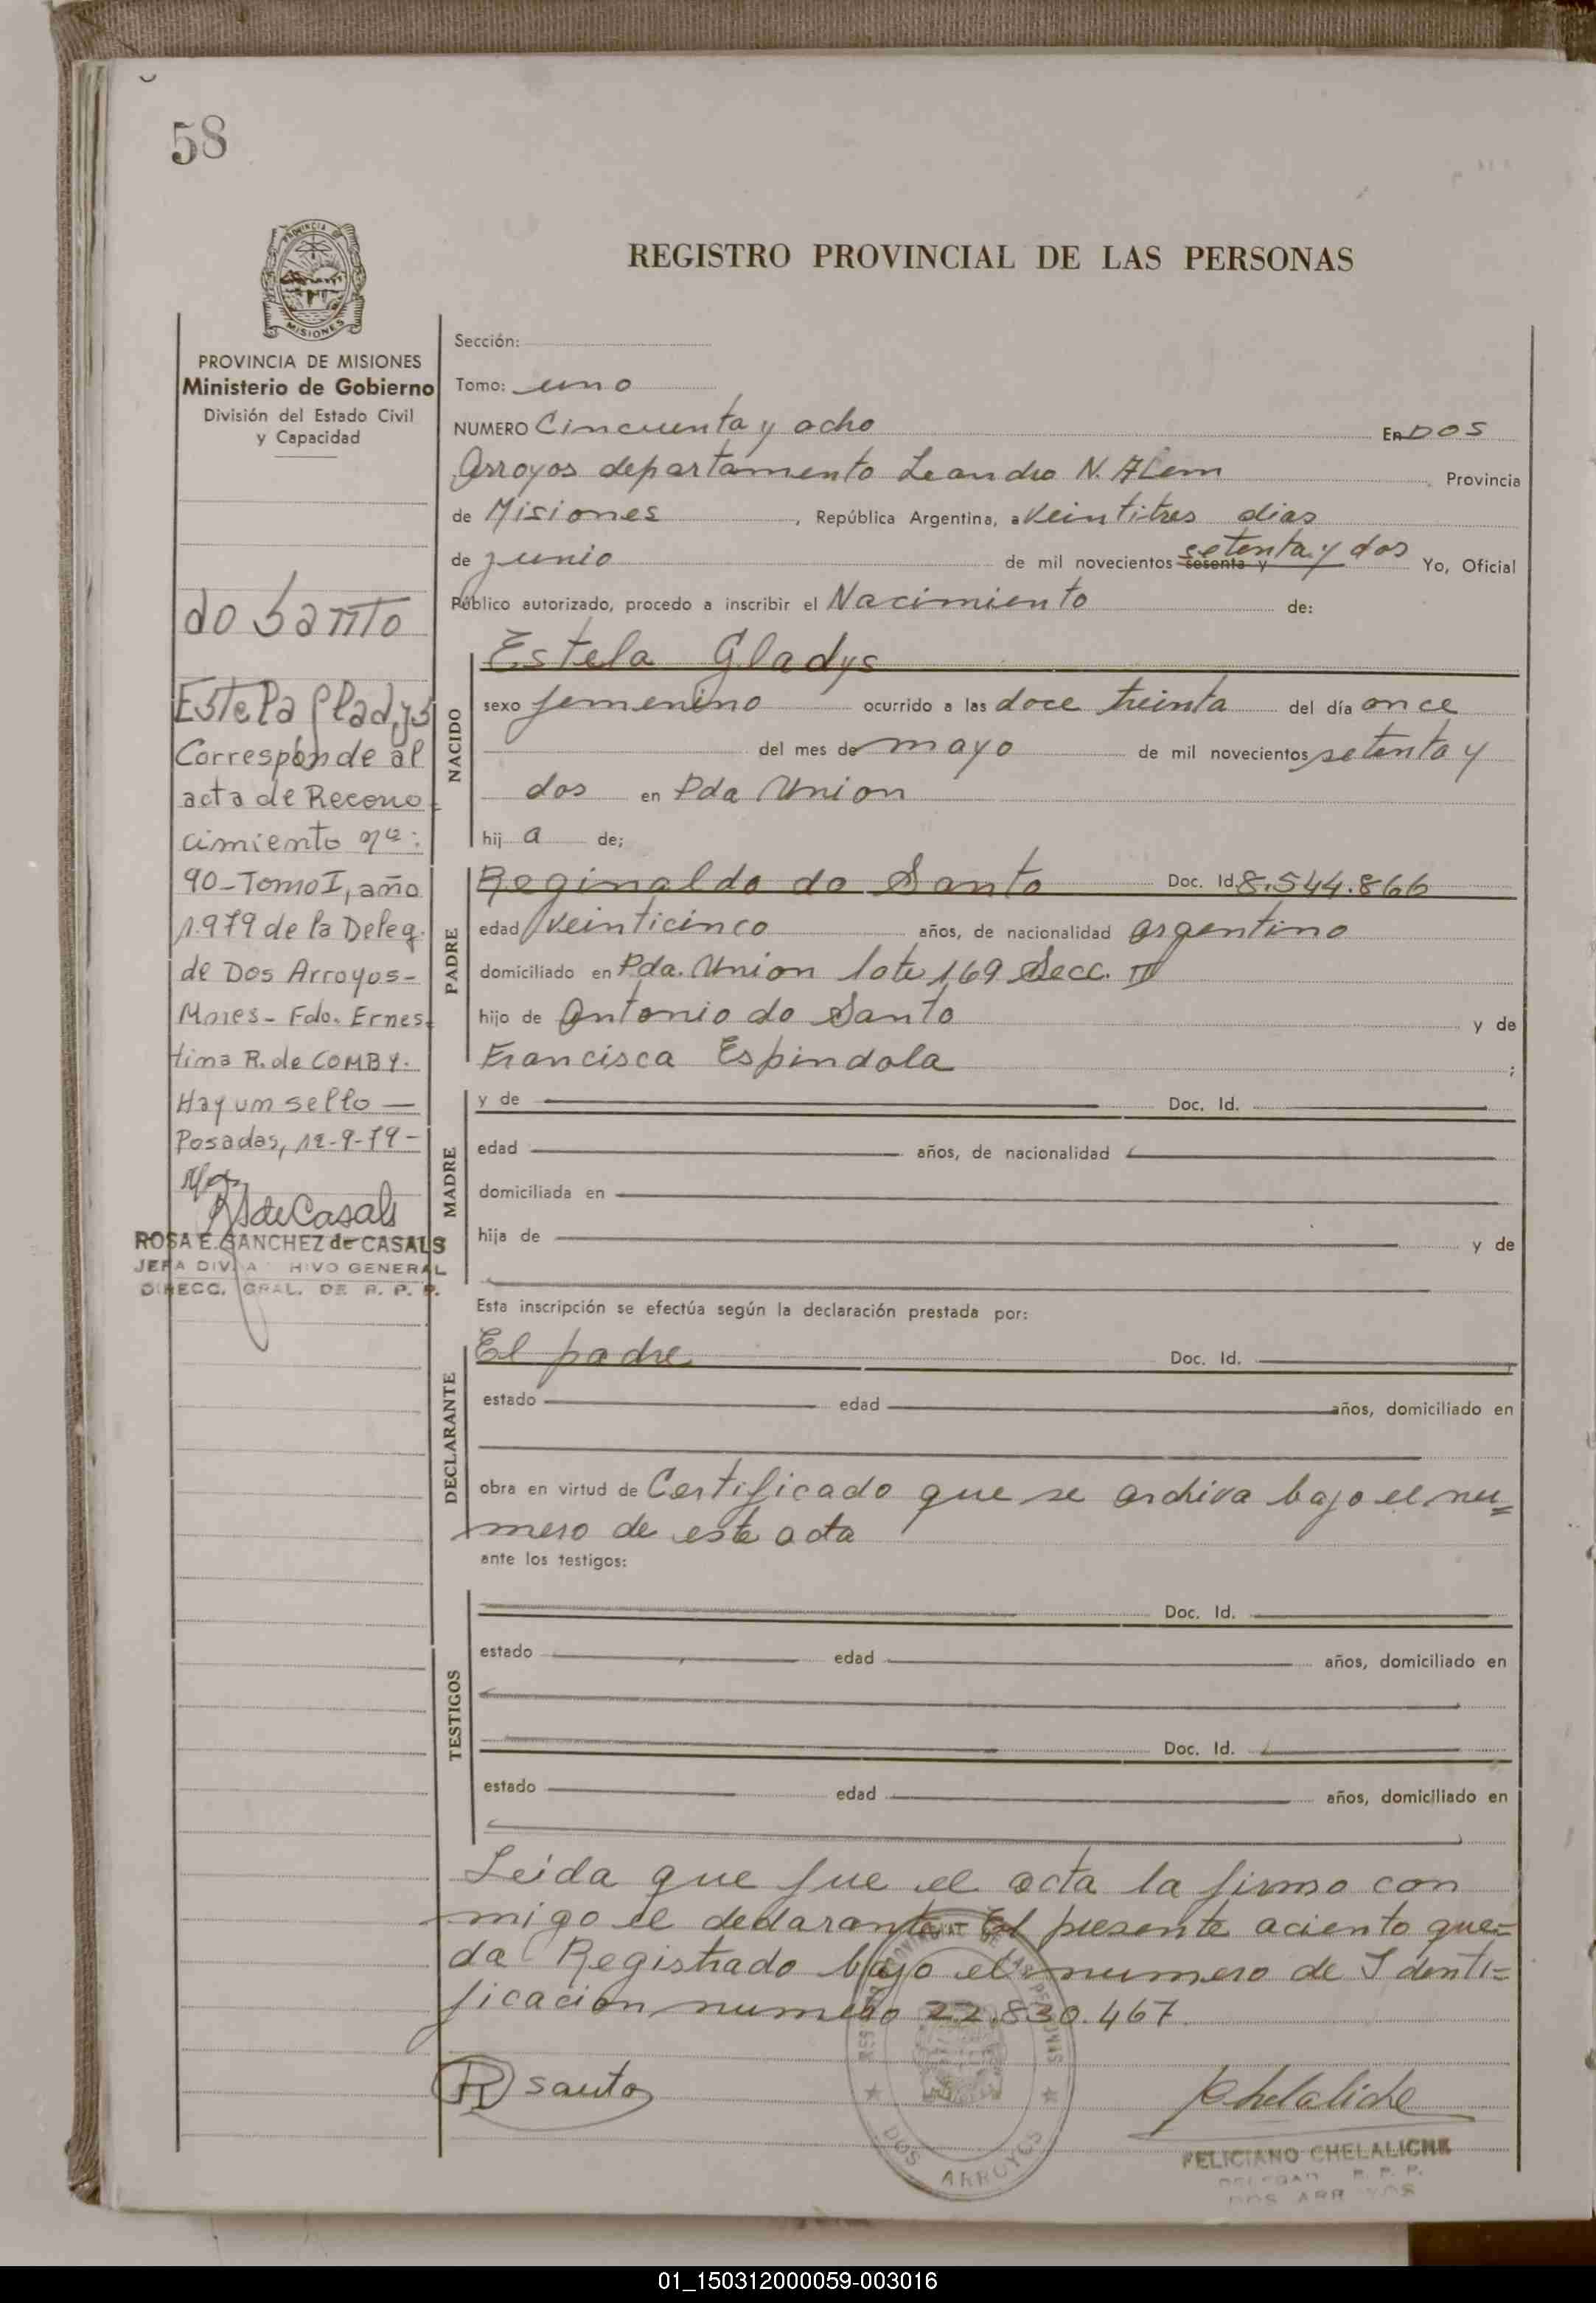 58
PROVINCIA DE
MISIONES
PROVINCIA DE MISIONES
Ministerio de Gobierno
División del Estado Civil
y Capacidad
do Santo
Estela Gladys
Corresponde al
acta de Recono
cimiento nº:
90-Tomo I, año
1.979 de la Deleg.
de Dos Arroyos-
Mnes- Fdo. Ernes
tina R. de COMBY.
Hay un sello —
Posadas, 12-9-79-
RSdeCasals
ROSA E. SANCHEZ de CASALS
JEFA DIV. A HIVO GENERAL
DIRECC. GRAL. DE R. P. P.
REGISTRO PROVINCIAL DE LAS PERSONAS
Sección:
Tomo: uno
NUMERO Cincuenta y ocho En DOS
Arroyos departamento Leandro N. ALem , Provincia
de Misiones , República Argentina, a veintitres dias
de junio de mil novecientos sesenta y setenta y dos Yo, Oficial
Público autorizado, procedo a inscribir el Nacimiento de:
NACIDO
Estela Gladys
sexo femenino ocurrido a las doce treinta del día once
del mes de mayo de mil novecientos setenta y
dos en Pda Union
hij a de;
PADRE
Reginaldo do Santo Doc. Id. 8.544.866
edad veinticinco años, de nacionalidad argentino
domiciliado en Pda. Union lote 169 Secc. IV
hijo de Antonio do Santo y de
Francisca Espindola ;
MADRE
y de Doc. Id.
edad años, de nacionalidad
domiciliada en
hija de y de
Esta inscripción se efectúa según la declaración prestada por:
DECLARANTE
El padre Doc. Id.
estado edad años, domiciliado en
obra en virtud de Certificado que se archiva bajo el nu=
mero de este acta
ante los testigos:
TESTIGOS
Doc. Id.
estado edad años, domiciliado en
Doc. Id.
estado edad años, domiciliado en
Leida que fue el acta la firma con
migo el declarante- El presente aciento que=
da Registrado bajo el numero de Identi=
ficacion numero 22.830.467.
R santo
Chelaliche
DOS ARROYOS
FELICIANO CHELALICHE
R. P. P.
DOS ARR YOS
01_150312000059-003016